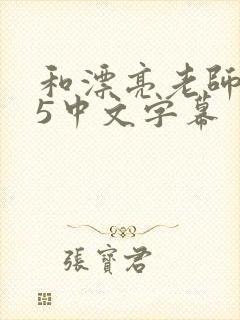 和漂亮老師
5中文字幕
張寶君